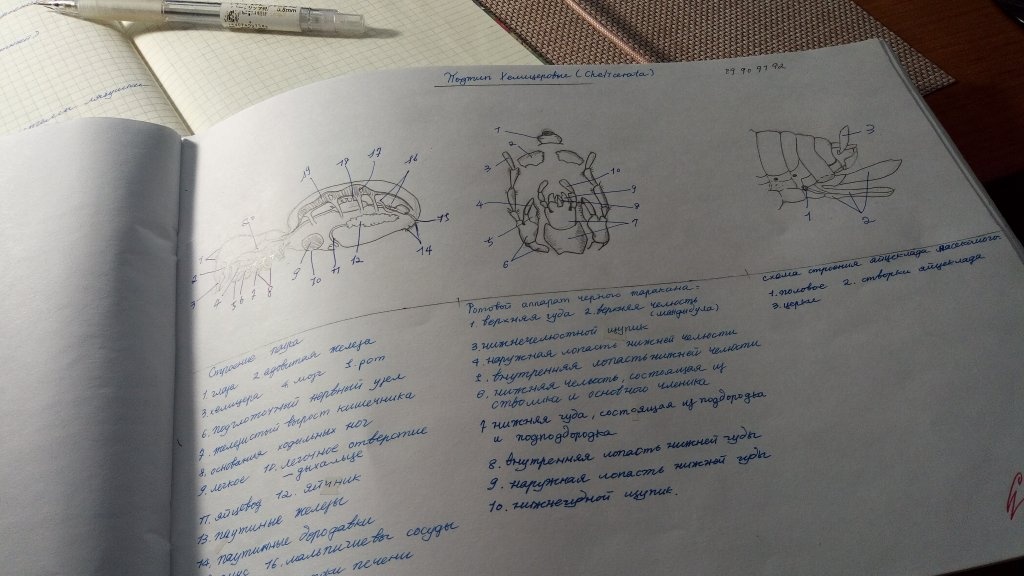 Подтип Хелицеровые (Chelicerata)
Строение паука
1. глаза 2. ядовитая железа
3. хелицера 4. мозг 5. рот
6. подглоточный нервный узел
7. железистый вырост кишечника
8. основания ходильных ног
9. легкое 10. легочное отверстие
– дыхальце
11. яйцевод 12. яичник
13. паутиные железы
14. паутинные бородавки
16. мальпигиевы сосуды
печени
Ротовой аппарат черного таракана:
1. верхняя губа 2. верхняя челюсть
(мандибула)
3. нижнечелюстной щупик
4. наружная лопасть нижней челюсти
5. внутренняя лопасть нижней челюсти
6. нижняя челюсть, состоящая из
стволика и основного членика
7 нижняя губа, состоящая из подбородка
и подподбородка
8. внутренняя лопасть нижней губы
9. наружная лопасть нижней губы
10. нижнегубной щупик.
схема строения яйцеклада насекомого
1. половое 2. створки яйцеклада
3. церки